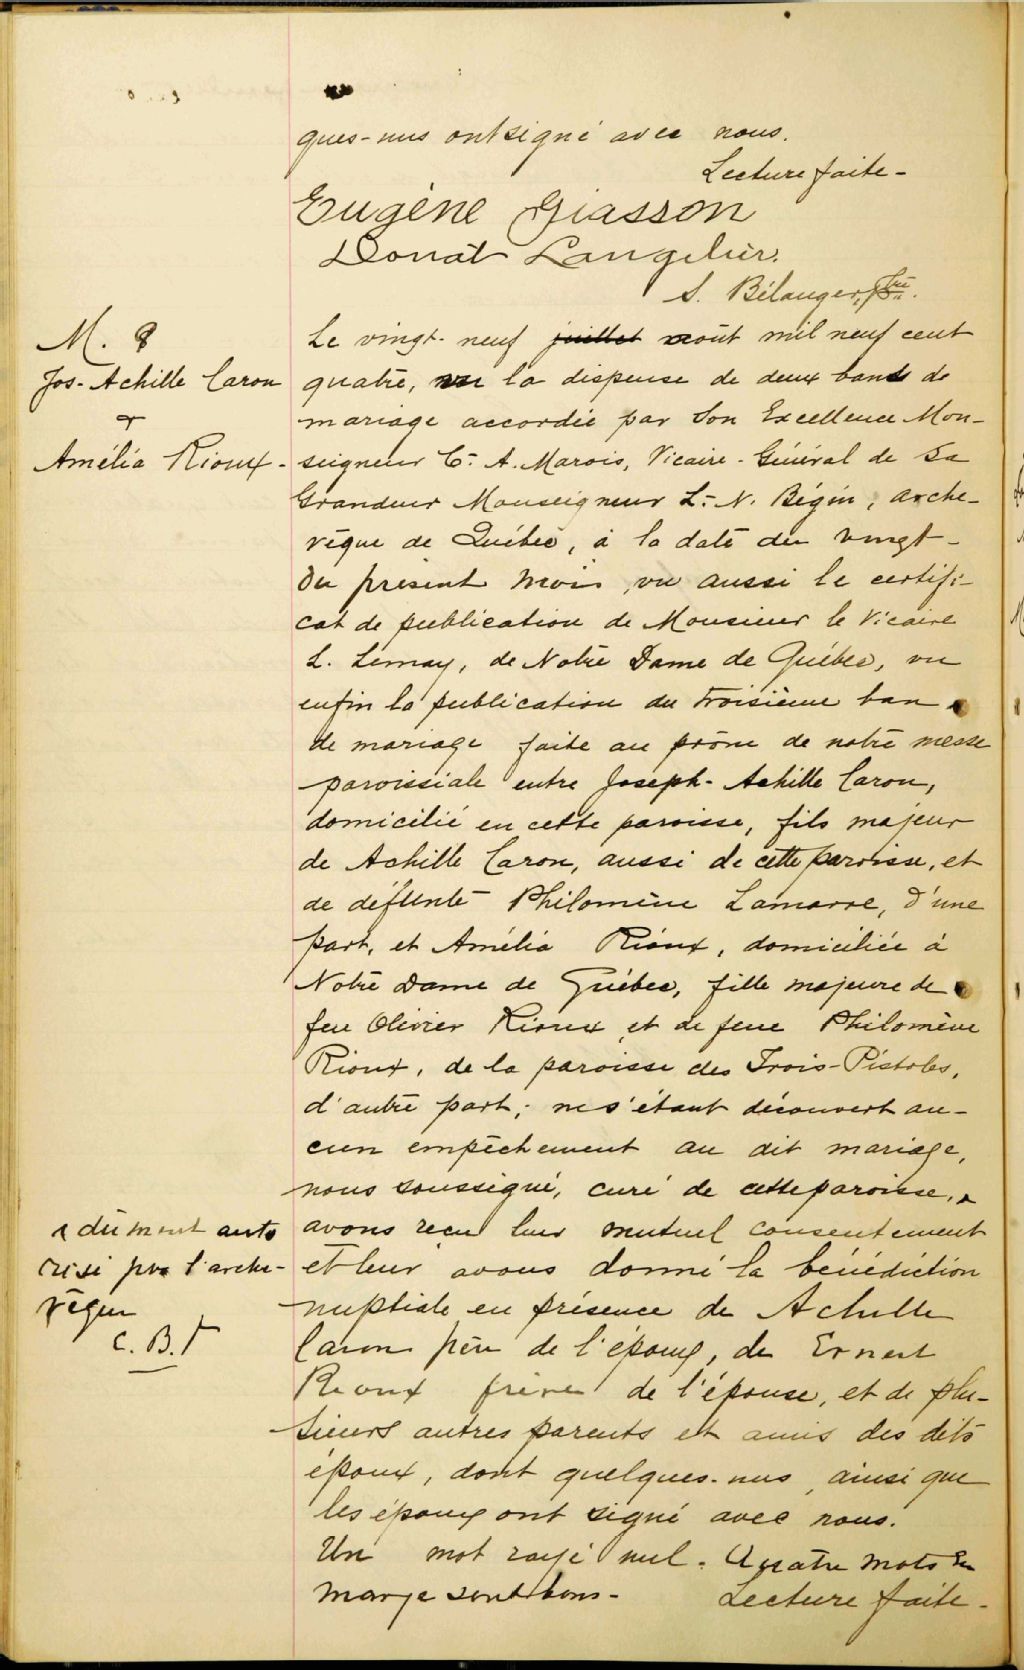 ques-uns ont signé avec nous.
Lecture faite-
Eugène Giasson
Donat Langelier.
S. Bélanger, Ptre.
M. 8
Jos- Achille Caron
+
Amélia Rioux-
Le vingt-neuf juillet août mil neuf cent
quatre, vu la dispense de deux bans de
mariage accordée par Son Excellence Mon-
seigneur C.- A. Marois, Vicaire-Général de Sa
Grandeur Monseigneur L.- N. Bégin, arche-
vêque de Québec, à la date du vingt-
du présent mois, vu aussi le certifi-
cat de publication de Monsieur le Vicaire
L. Lemay, de Notre Dame de Québec, vu
enfin la publication du troisième ban
de mariage faite au prône de notre messe
paroissiale entre Joseph-Achille Caron,
domicilié en cette paroisse, fils majeur
de Achille Caron, aussi de cette paroisse, et
de défunte Philomène Lamarre, d'une
part, et Amélia Rioux, domiciliée à
Notre Dame de Québec, fille majeure de
feu Olivier Rioux et de feue Philomène
Rioux, de la paroisse des Trois-Pistoles,
d'autre part; ne s'étant découvert au-
cun empêchement au dit mariage,
nous soussigné, curé de cette paroisse,
dûment auto
risé par l'arche-
vêque
C. B.
avons reçu leur mutuel consentement
et leur avons donné la bénédiction
nuptiale en présence de Achille
Caron père de l'époux, de Ernest
Rioux frère de l'épouse, et de plu-
sieurs autres parents et amis des dits
époux, dont quelques-uns, ainsi que
les époux ont signé avec nous.
Un mot rayé nul. Quatre mots en
marge sont bons- Lecture faite-